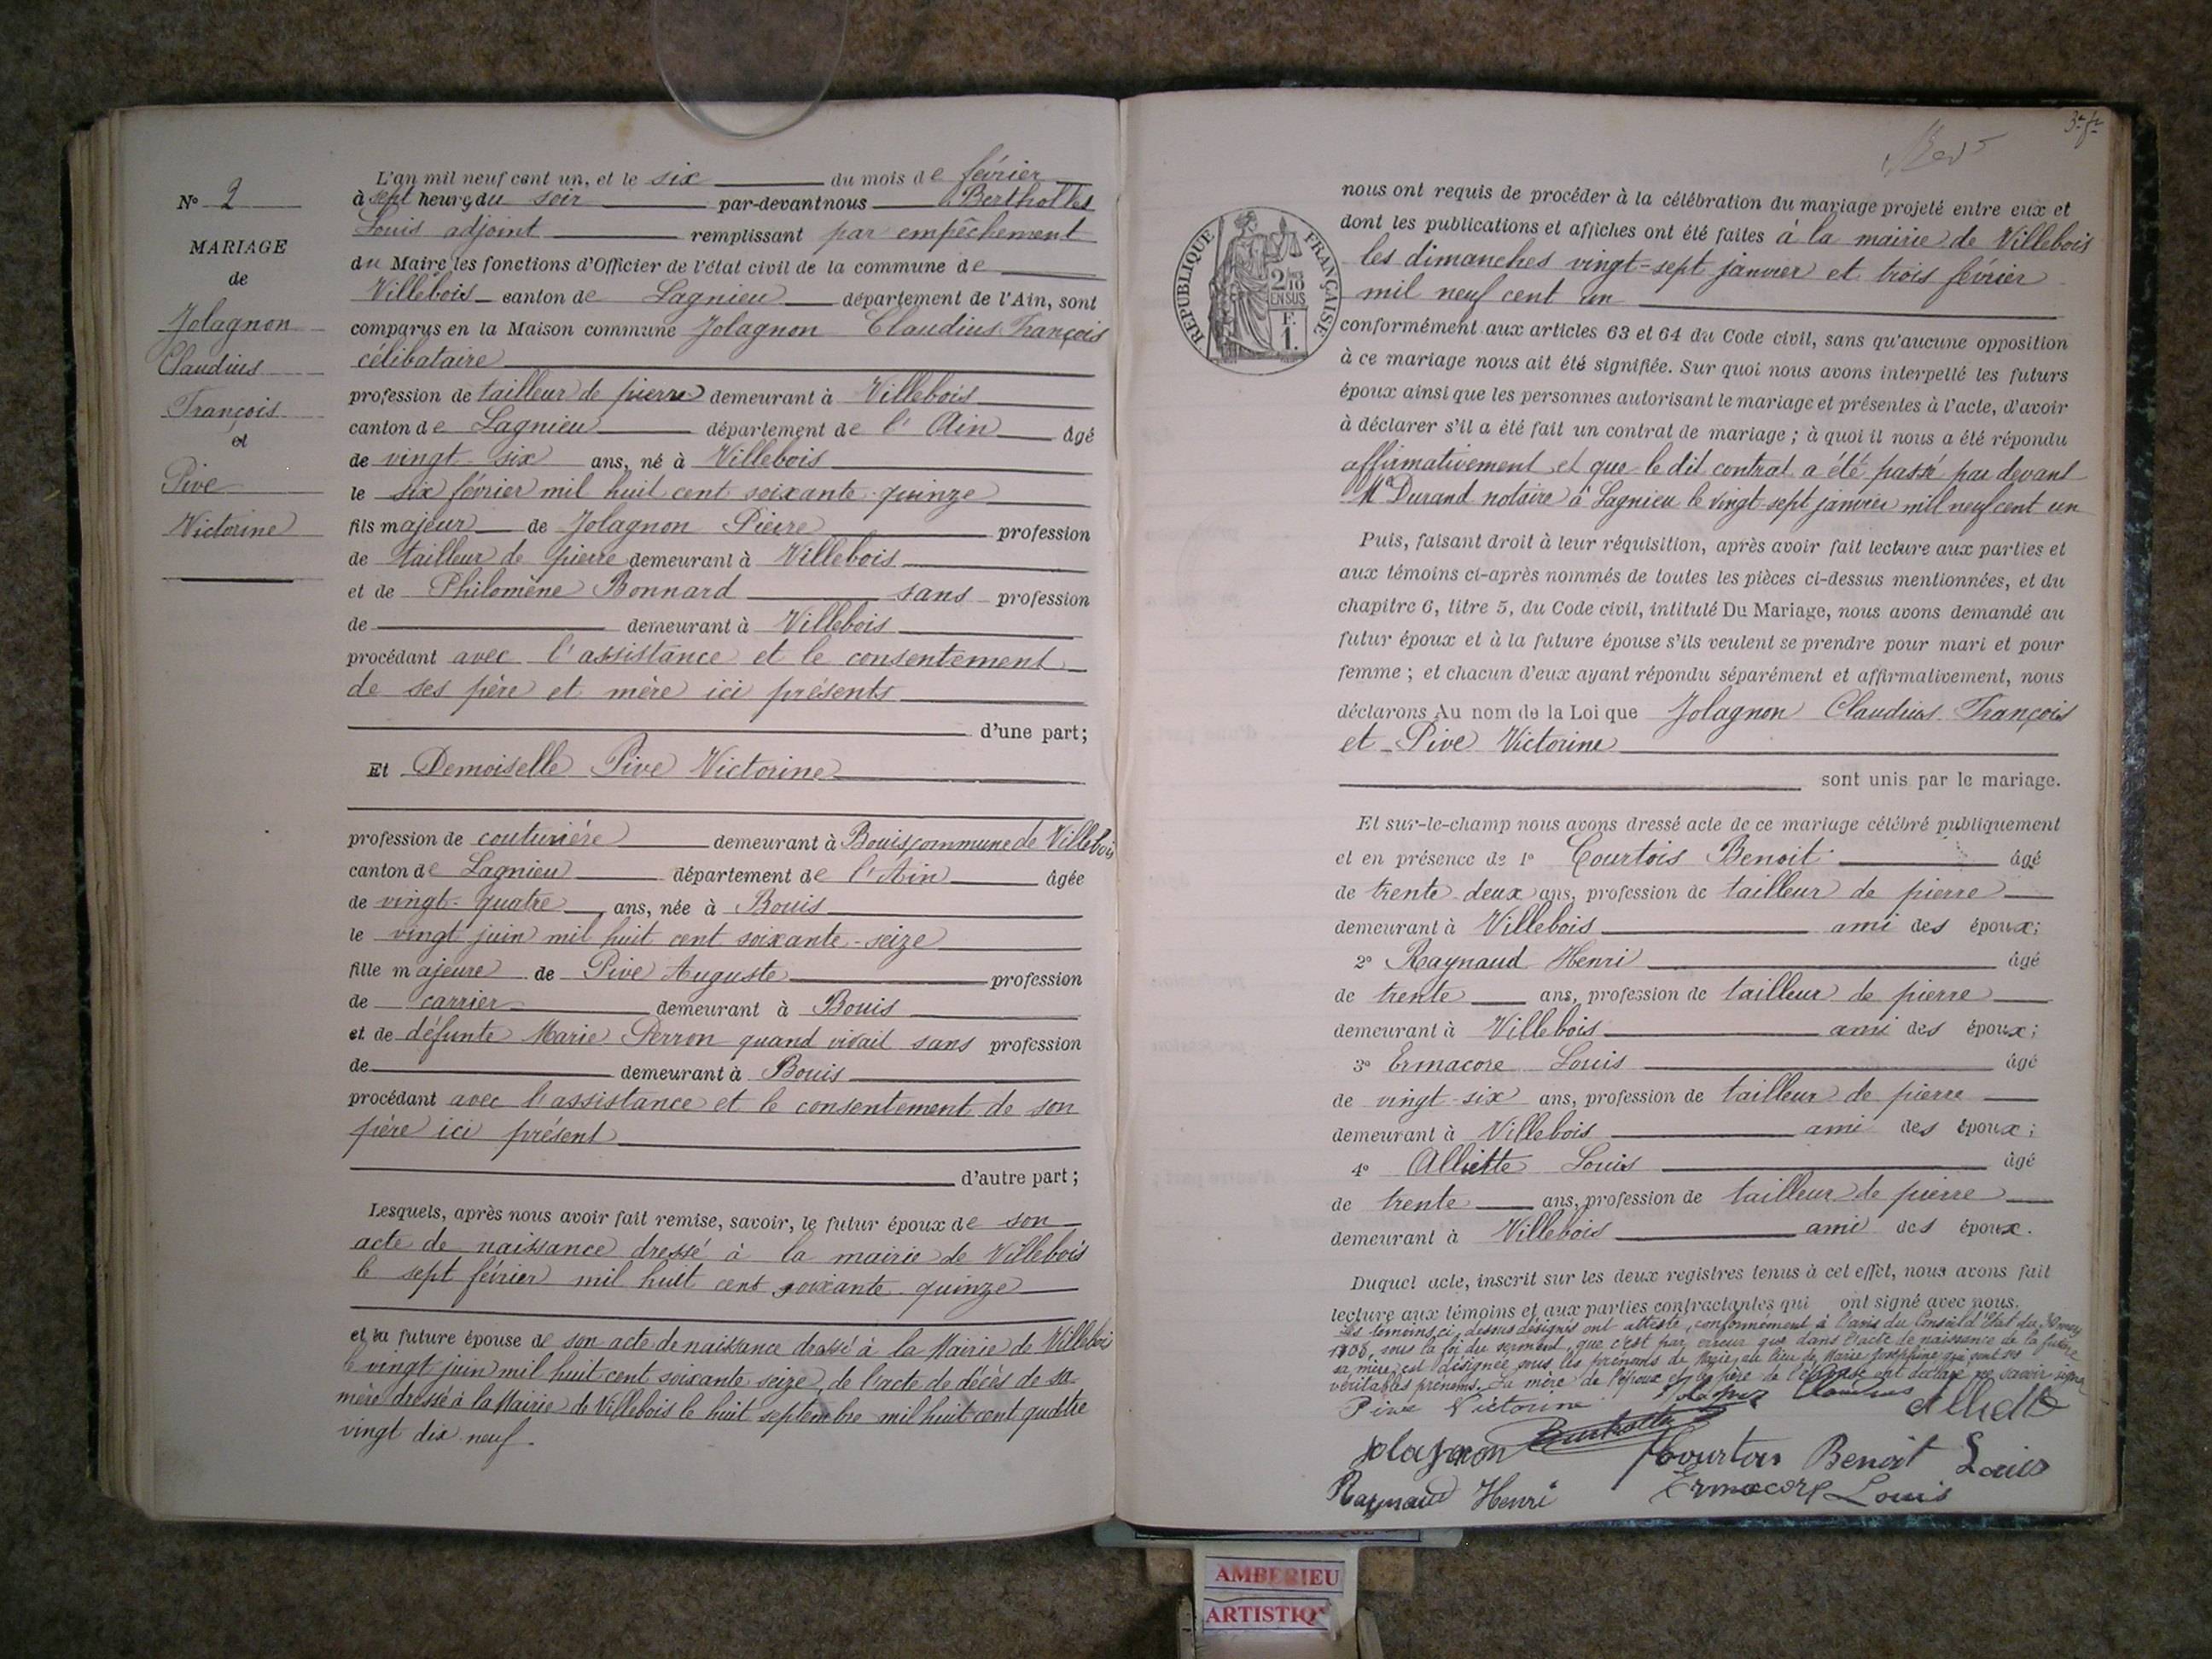 N° 2
MARIAGE
de
Jolagnon
Claudius
François
et
Pive
Victorine
L'an mil neuf cent un, et le six du mois de février
à sept heures du soir par-devant nous Bertholles
Louis adjoint remplissant par empêchement
du Maire les fonctions d'Officier de l'état civil de la commune de
Villebois canton de Lagnieu département de l'Ain, sont
comparus en la Maison commune Jolagnon Claudius François
célibataire
profession de tailleur de pierre demeurant à Villebois
canton de Lagnieu département de l'Ain âgé
de vingt-six ans, né à Villebois
le six février mil huit cent soixante-quinze
fils majeur de Jolagnon Pierre profession
de tailleur de pierre demeurant à Villebois
et de Philomène Bonnard sans profession
de demeurant à Villebois
procédant avec l'assistance et le consentement
de ses père et mère ici présents
d'une part;
Et Demoiselle Pive Victorine
profession de couturière demeurant à Bouis commune de Villebois
canton de Lagnieu département de l'Ain âgée
de vingt-quatre ans, née à Bouis
le vingt juin mil huit cent soixante-seize
fille majeure de Pive Auguste profession
de carrier demeurant à Bouis
et de défunte Marie Perron quand vivait sans profession
de demeurant à Bouis
procédant avec l'assistance et le consentement de son
père ici présent
d'autre part;
Lesquels, après nous avoir fait remise, savoir, le futur époux de son
acte de naissance dressé à la mairie de Villebois
le sept février mil huit cent soixante-quinze
et la future épouse de son acte de naissance dressé à la Mairie de Villebois
le vingt juin mil huit cent soixante seize, de l'acte de décès de sa
mère dressé à la Mairie de Villebois le huit septembre mil huit cent quatre
vingt dix neuf.
REPUBLIQUE FRANÇAISE
2/10
EN SUS
F.
1.
nous ont requis de procéder à la célébration du mariage projeté entre eux et
dont les publications et affiches ont été faites à la mairie de Villebois
les dimanches vingt-sept janvier et trois février
mil neuf cent un
conformément aux articles 63 et 64 du Code civil, sans qu'aucune opposition
à ce mariage nous ait été signifiée. Sur quoi nous avons interpellé les futurs
époux ainsi que les personnes autorisant le mariage et présentes à l'acte, d'avoir
à déclarer s'il a été fait un contrat de mariage; à quoi il nous a été répondu
affirmativement et que le dit contrat a été passé par devant
Me Durand notaire à Lagnieu le vingt-sept janvier mil neuf cent un
Puis, faisant droit à leur réquisition, après avoir fait lecture aux parties et
aux témoins ci-après nommés de toutes les pièces ci-dessus mentionnées, et du
chapitre 6, titre 5, du Code civil, intitulé Du Mariage, nous avons demandé au
futur époux et à la future épouse s'ils veulent se prendre pour mari et pour
femme; et chacun d'eux ayant répondu séparément et affirmativement, nous
déclarons Au nom de la Loi que Jolagnon Claudius François
et Pive Victorine
sont unis par le mariage.
Et sur-le-champ nous avons dressé acte de ce mariage célébré publiquement
et en présence de 1° Courtois Benoit âgé
de trente deux ans, profession de tailleur de pierre
demeurant à Villebois ami des époux;
2° Raynaud Henri âgé
de trente ans, profession de tailleur de pierre
demeurant à Villebois ami des époux;
3° Ermacore Louis âgé
de vingt-six ans, profession de tailleur de pierre
demeurant à Villebois ami des époux;
4° Alliette Louis âgé
de trente ans, profession de tailleur de pierre
demeurant à Villebois ami des époux.
Duquel acte, inscrit sur les deux registres tenus à cet effet, nous avons fait
lecture aux témoins et aux parties contractantes qui ont signé avec nous.
Les témoins ci-dessus désignés ont attesté, conformément à l'avis du Conseil d'Etat du 30 mars
1808, sous la foi du serment, que c'est par erreur que dans l'acte de naissance de la future
sa mère est désignée sous les prénoms de Marie, au lieu de Marie Joséphine qui sont ses
véritables prénoms. La mère de l'époux et le père de l'épouse ont déclaré ne savoir signer
Pive Victorine Jolagnon Claudius Alliette
Jolagnon Bertholles Courtois Benoit Louis
Raynaud Henri Ermacore Louis
AMBERIEU
ARTISTIQ